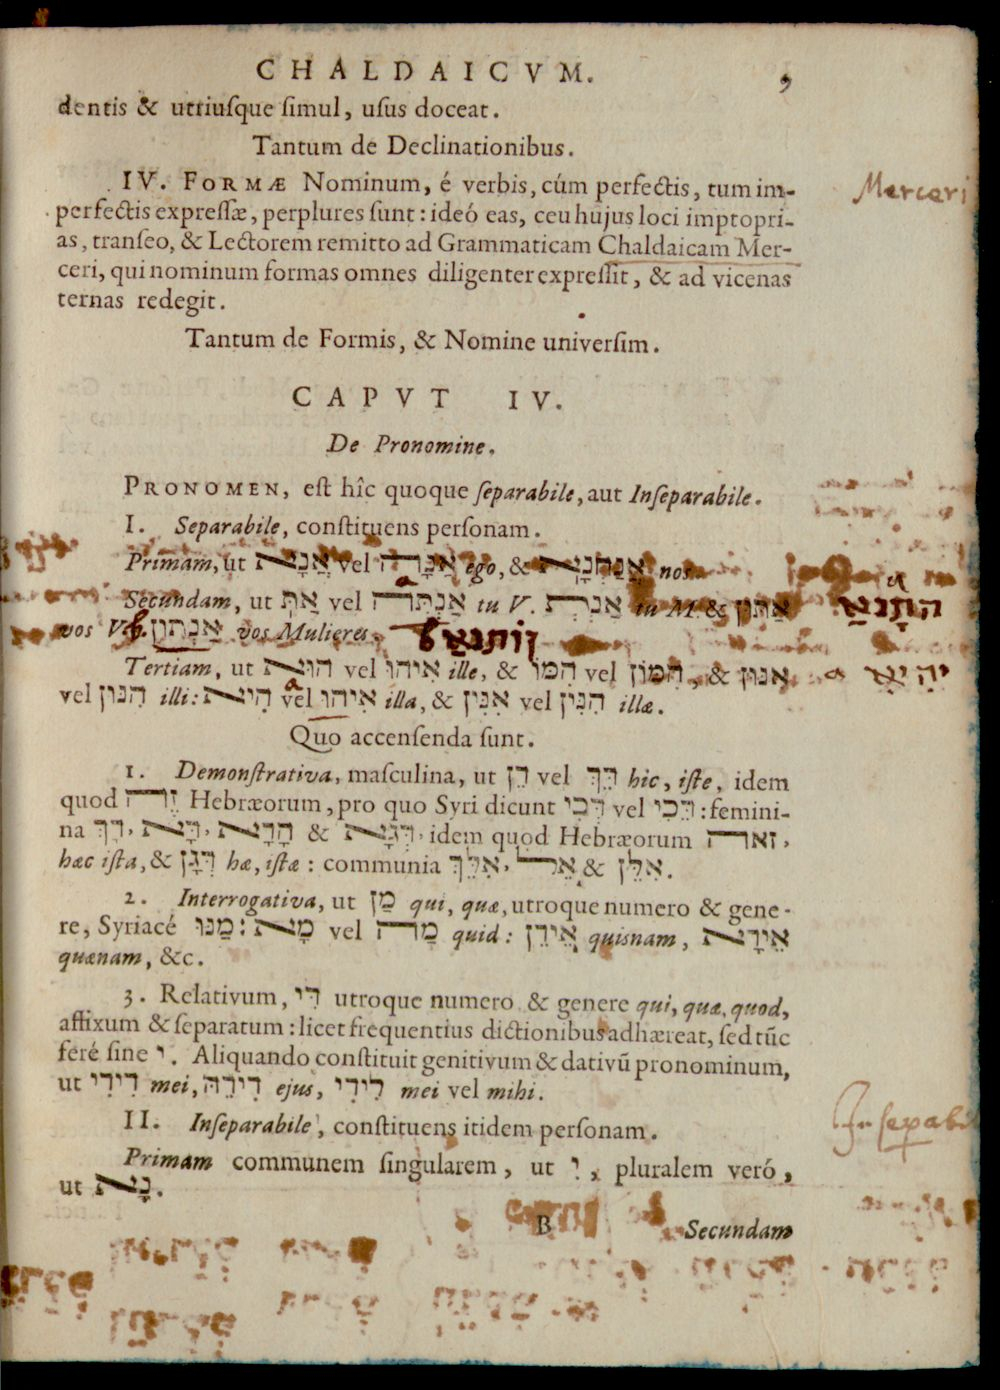 CHALDAICVM. 9
dentis & utriuſque ſimul, uſus doceat.
Tantum de Declinationibus.
IV. FORMÆ Nominum, é verbis, cúm perfectis, tum im-
Merceri
perfectis expreſſæ, perplures ſunt: ideó eas, ceu hujus loci imptopri-
as, tranſeo, & Lectorem remitto ad Grammaticam Chaldaicam Mer-
ceri, qui nominum formas omnes diligenter expreſſit, & ad vicenas
ternas redegit.
Tantum de Formis, & Nomine univerſim.
CAPVT IV.
De Pronomine.
PRONOMEN, eſt hîc quoque ſeparabile, aut Inſeparabile.
I. Separabile, conſtituens perſonam.
Primam, ut אֲנָא vel אֲנָה ego, & אֲנַחְנָא nos.
Secundam, ut אַתְּ vel אַנְתָּה tu V. אַנְתְּ tu M. & אַתּוּן
vos V. אַנְתּוּן vos Mulieres.
Tertiam, ut הוּא vel אִיהוּ ille, & הִמּוֹ vel הִמּוֹן, & אִנּוּן
vel הִנּוּן illi: הִיא vel אִיהוּ illa, & אִנִּין vel הִנִּין illæ.
Quo accenſenda ſunt.
1. Demonſtrativa, maſculina, ut דֵּן vel דֵּךְ hic, iſte, idem
quod זֶה Hebræorum, pro quo Syri dicunt דְּכִי vel דֵּכִי: femini-
na דָּךְ, דָּא, הָדָא & דְּגָא, idem quod Hebræorum זאה,
hæc iſta, & דְּגָן hæ, iſtæ: communia אִלֵּךְ, אֵל & אִלֵּן.
2. Interrogativa, ut מַן qui, quæ, utroque numero & gene-
re, Syriacé מַנּוּ: מָא vel מָה quid: אֵידֵן quisnam, אֵידָא
quænam, &c.
3. Relativum, דִּי utroque numero & genere qui, quæ, quod,
affixum & ſeparatum: licet frequentius dictionibus adhæreat, ſed tūc
feré ſine י. Aliquando conſtituit genitivum & dativū pronominum,
ut דִידִי mei, דִידֵהּ ejus, לִידִי mei vel mihi.
II. Inſeparabile, conſtituens itidem perſonam.
Inſepabi
Primam communem ſingularem, ut י, pluralem veró,
ut נָא.
B Secundam